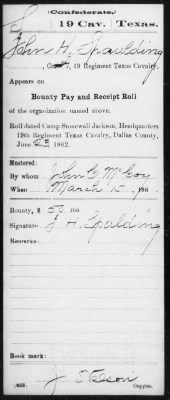 (Confederate.)
S 19 Cav. Texas.
John H. Spaulding
, Co. , 19 Regiment Texas Cavalry.
Appears on
Bounty Pay and Receipt Roll
of the organization named above.
Roll dated Camp Stonewall Jackson, Headquarters
19th Regiment Texas Cavalry, Dallas County,
June 23 1862.
Mustered:
By whom John C McCoy
When March 15, 186 .
Bounty, $ 50 100
Signature J H. Spalding
Remarks:
Book mark:
Copyist.